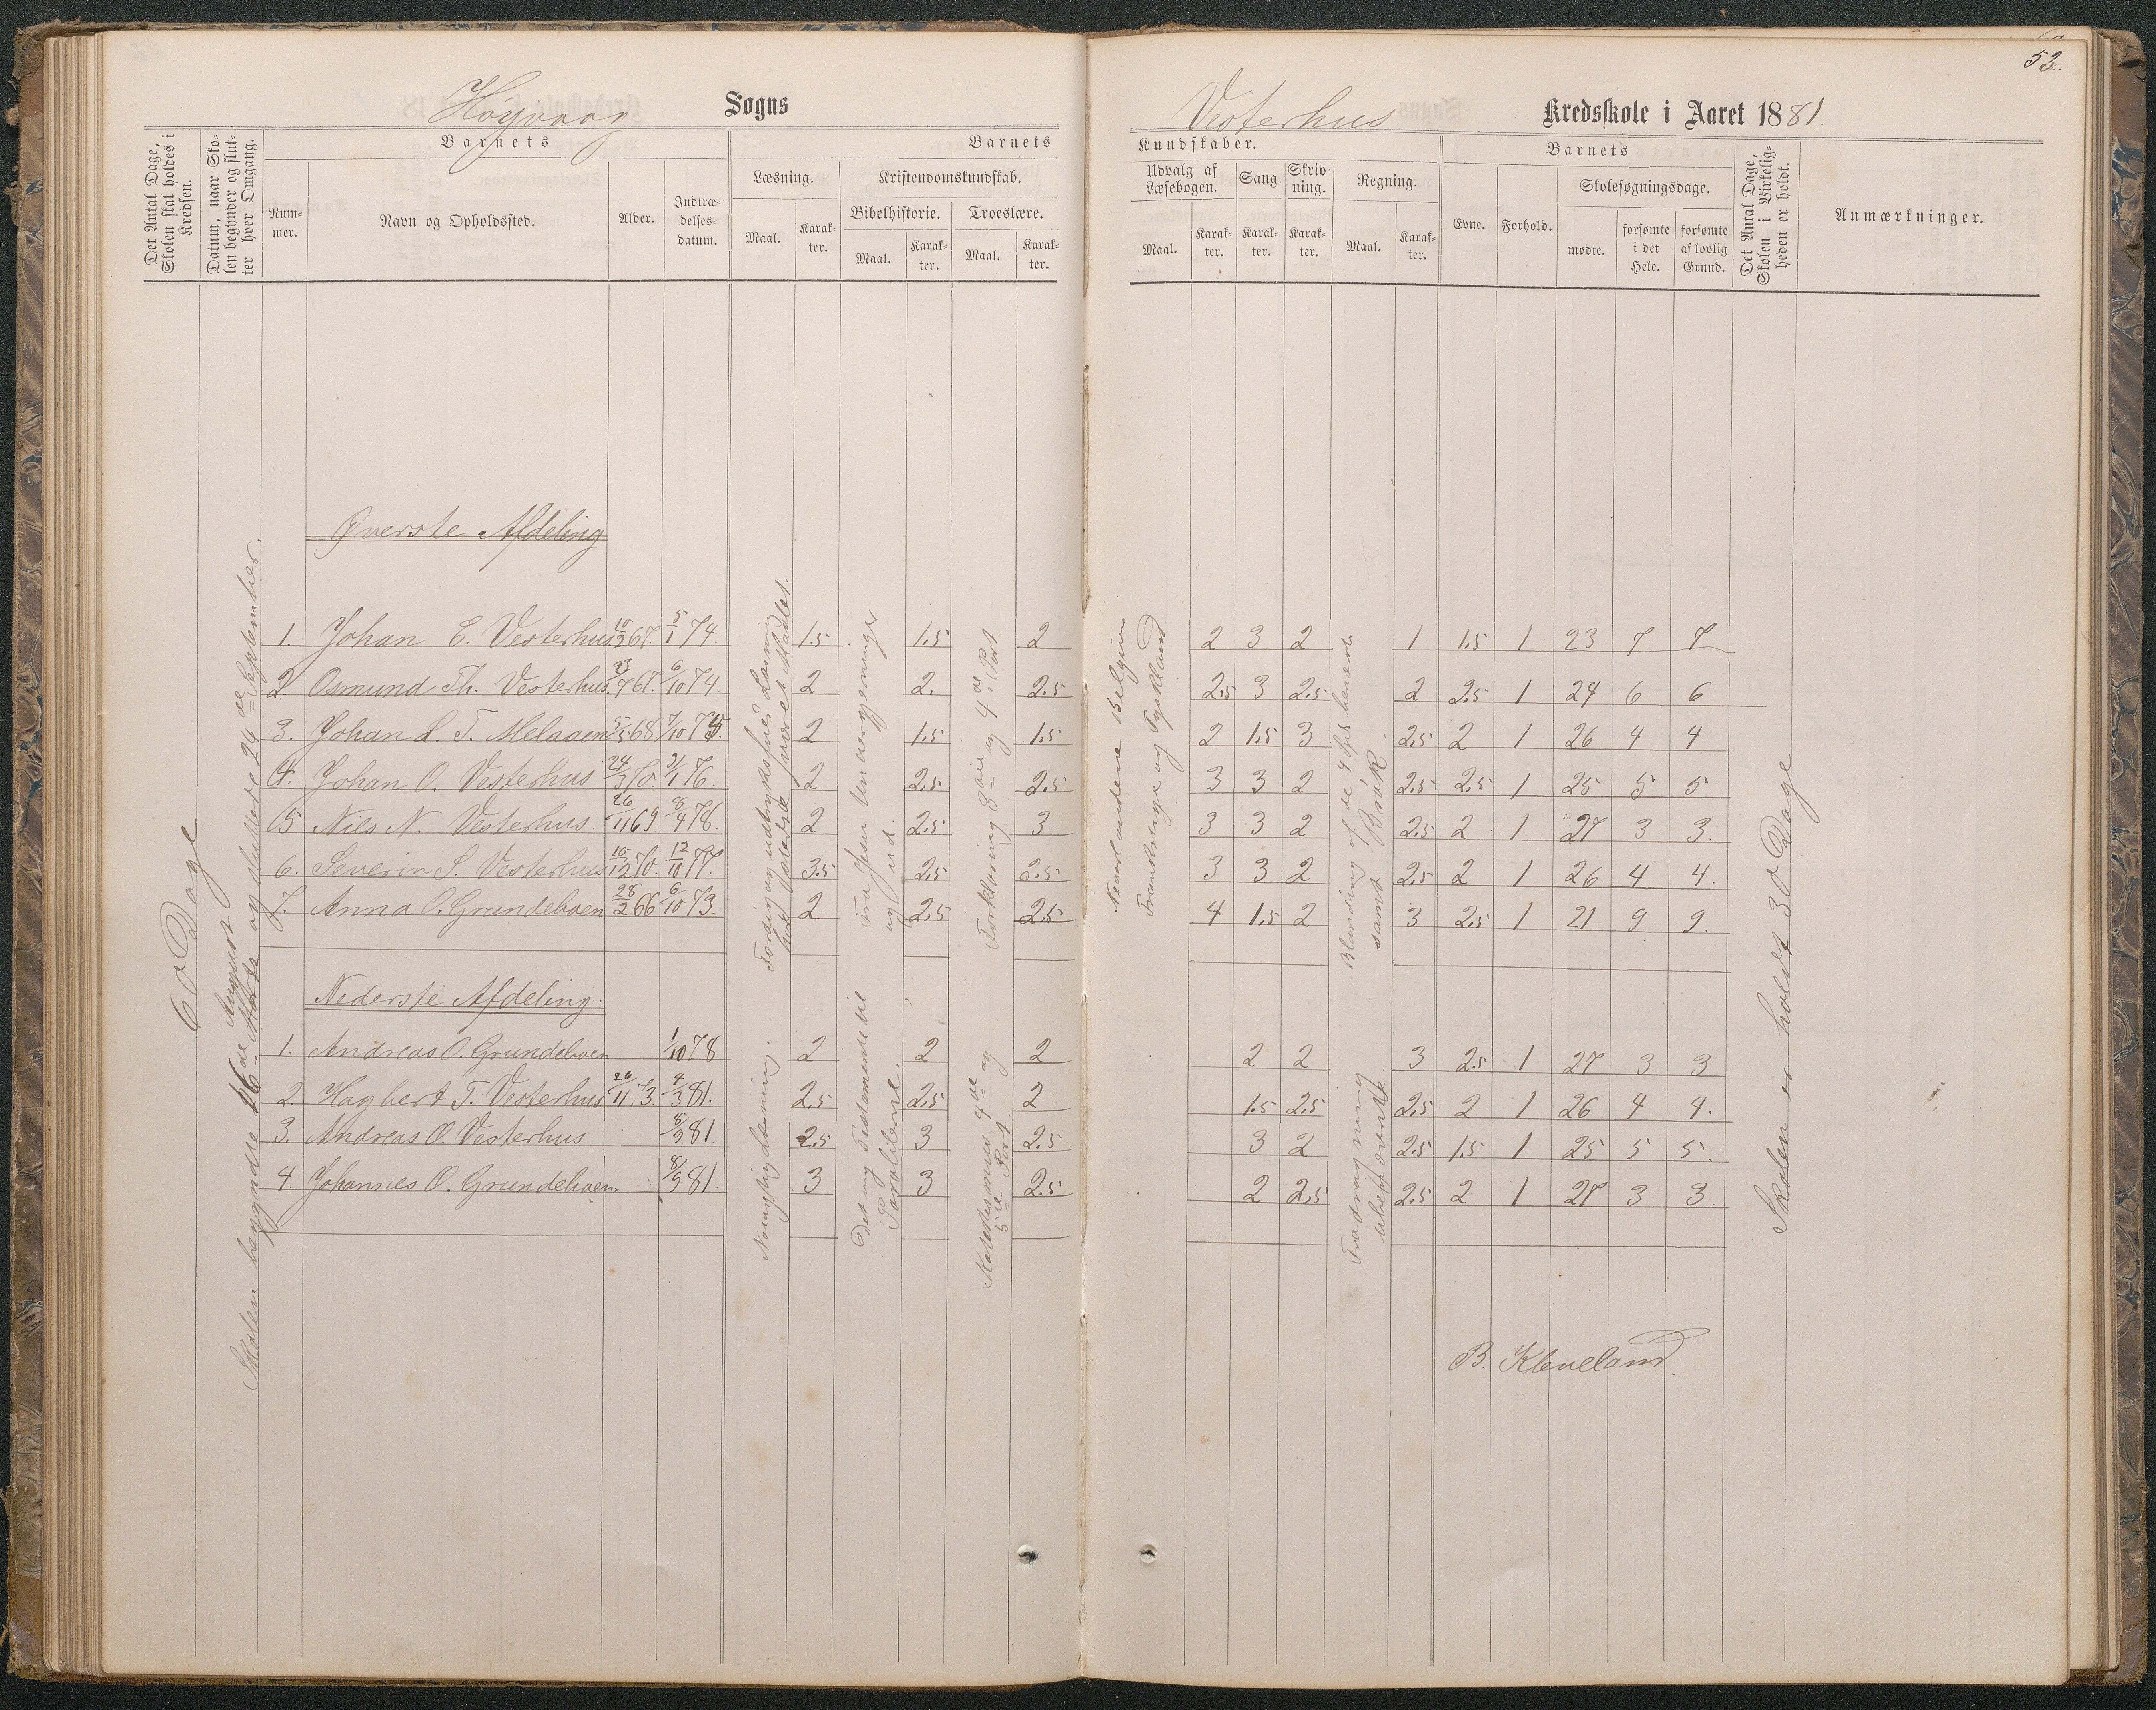 53.
Høyvaag Sogns
Vesterhus Kredsskole i Aaret 1881.
Det Antal Dage, Skolen skal holdes i Kredsen.
Datum, naar Skolen begynder og slutter hver Omgang.
Barnets
Nummer.
Navn og Opholdssted.
Alder.
Indtrædelsesdatum.
Barnets
Læsning.
Maal.
Karakter.
Kristendomskundskab.
Bibelhistorie.
Maal.
Karakter.
Troeslære.
Maal.
Karakter.
Kundskaber.
Udvalg af Læsebogen.
Maal.
Karakter.
Sang.
Karakter.
Skrivning.
Karakter.
Regning.
Maal.
Karakter.
Barnets
Evne.
Forhold.
Skolesøgningsdage.
mødte.
forsømte i det Hele.
forsømte af lovlig Grund.
Det Antal Dage, Skolen i Virkeligheden er holdt.
Anmærkninger.
60 Dage
Skolen begyndte 26de August og sluttede 29de September.
Øverste Afdeling
1. Johan E. Vesterhus 10/2 67. 5/1 74. 1.5 1.5 2 2 3 2 1 1.5 1 23 7 7
2. Osmund Th. Vesterhus 23/7 67. 6/10 74 2 2. 2.5 2.5 3 2.5 2 2.5 1 24 6 6
3. Johan L. T. Melaaen 5/5 68 7/10 75. 2 1.5 1.5 2 1.5 3 2.5 2 1 26 4 4
4. Johan O. Vesterhus 24/3 70. 31/1 76. 2 2.5 2.5 3 3 2 2.5 2.5 1 25 5 5
5 Nils N. Vesterhus. 26/11 69 8/4 78. 2 2.5 3 3 3 2 2.5 2 1 27 3 3.
6. Severin S. Vesterhus 10/12 70. 12/10 77. 3.5 2.5 2.5 3 3 2 2.5 2 1 26 4 4.
7. Anna O. Grundeboen 28/2 66 6/10 73. 2 2.5 2.5 4 1.5 2 3 2.5 1 21 9 9.
Færdig og udtryksfuld Læsning
Fra Jesu Undergjerninger
og ud.
Forklaring 3die og 4de Part.
Nederlandene Belgien
Frankrige og Tyskland
Blanding af de 4
samt Brøk
Nederste Afdeling.
1. Andreas O. Grundeboen 1/10 78 2 2 2 2 2 3 2.5 1 27 3 3
2. Hagbert T. Vesterhus 26/11 73. 4/3 81. 2.5 2.5 2 1.5 2.5 2.5 2 1 26 4 4.
3. Andreas O. Vesterhus 8/9 81. 2.5 3 2.5 3 2 2.5 1.5 1 25 5 5.
4. Johannes O. Grundeboen. 8/9 81. 3 3 2.5 2 2.5 2.5 2 1 27 3 3.
Nøiagtig Læsning.
Det ny Testamente til
Parablerne.
Katekismus 4de og
5te Part
Fradragning
ubenævnte.
Skolen er holdt 30 Dage
B. Kleveland.